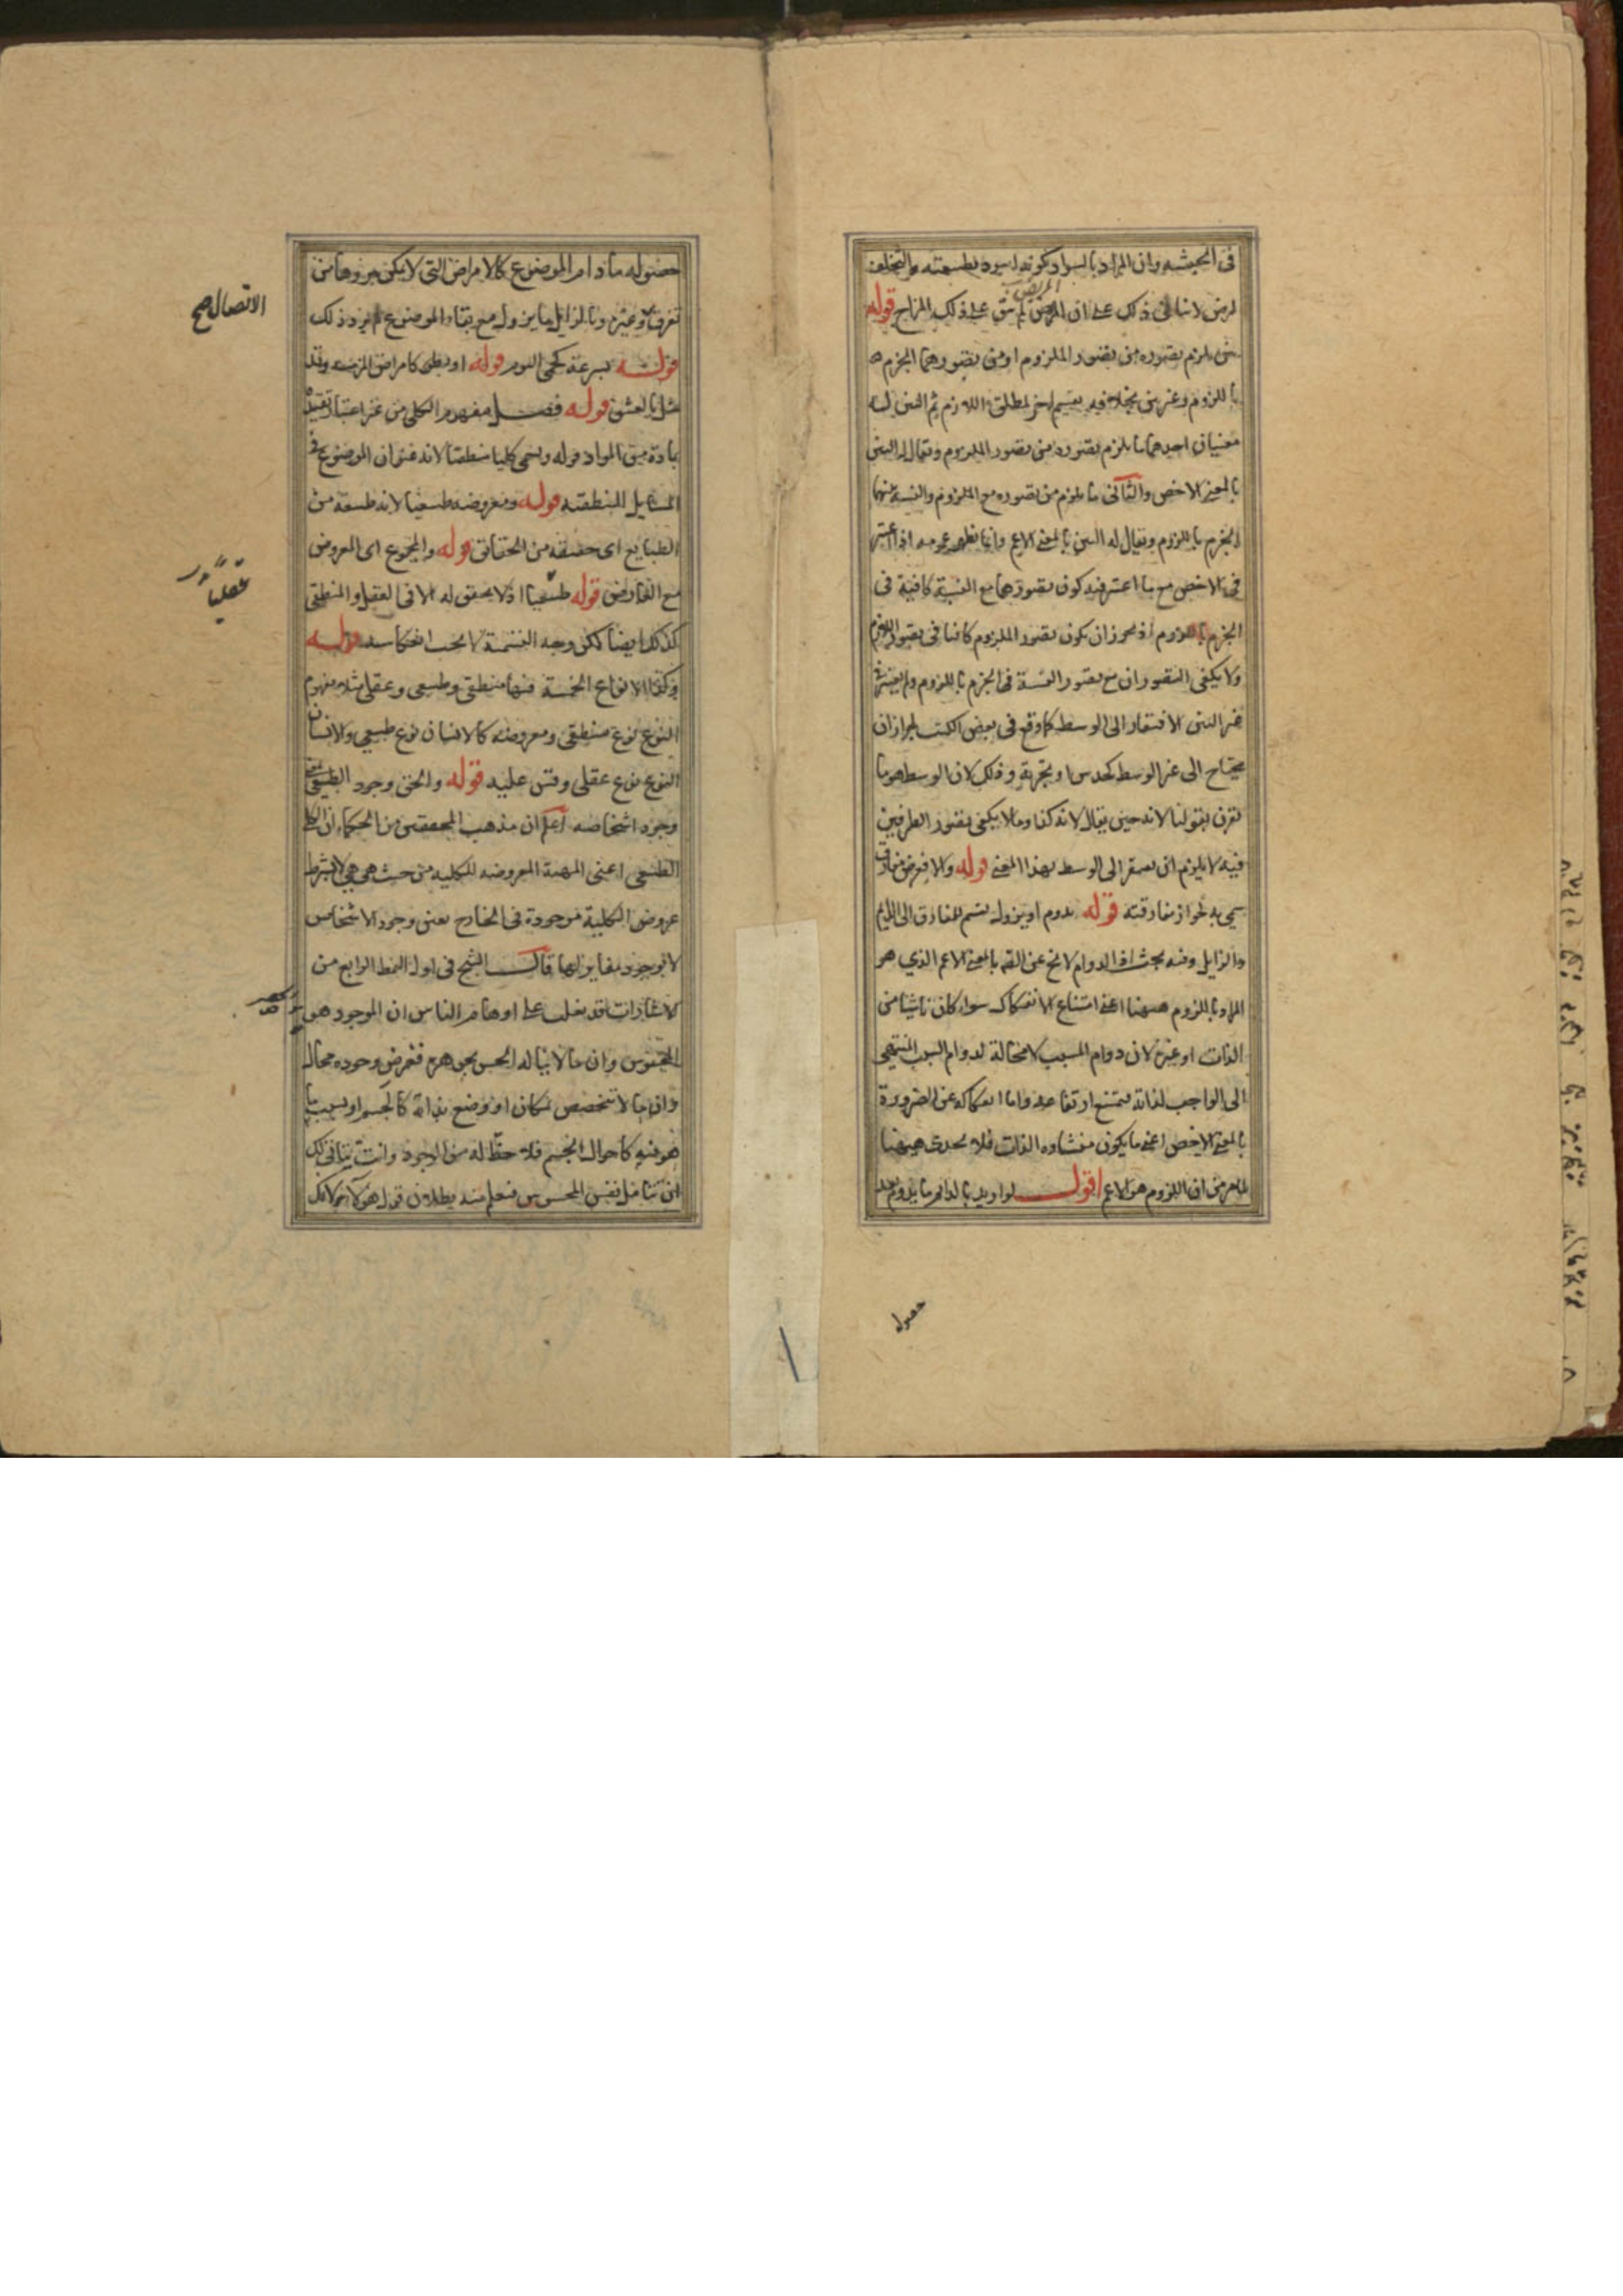 في الحبشة وان المراد بالسواد كونه اسود بطبيعته والتخلف
المريض
لمرض لا ينافي ذلك على ان المريض لم يبق على ذلك المزاج قوله
بين يلزم تصوره من تصور الملزوم او من تصورهما الجزم
باللزوم وغير بين بخلافه تقسيم اخر لمطلق اللازم ثم البين له
معنيان احدهما ما يلزم تصوره من تصور الملزوم ويقال له البين
بالمعنى الاخص والثاني ما يلزم من تصوره مع الملزوم والنسبة بينهما
الجزم باللزوم ويقال له البين بالمعنى الاعم وانما يظهر عمومه اذا اعتبر
في الاخص مع ما اعتبر فيه كون تصورهما مع النسبة كافية في
الجزم باللزوم اذ يجوز ان يكون تصور الملزوم كافيا في تصور اللازم
ولا يكفي التصوران مع تصور النسبة في الجزم باللزوم ولم يعتبر في
غير البين الافتقار الى الوسط كما وقع في بعض الكتب لجواز ان
يحتاج الى غير الوسط كحدس او تجربة وذلك لان الوسط هو ما
يقرن بقولنا لانه حين يقال لانه كذا وما لا يكفي تصور الطرفين
فيه لا يلزم ان يفتقر الى الوسط بهذا المعنى قوله والا فعرض مفارق
سمي به لجواز مفارقته قوله يدوم او يزول تقسيم للمفارق الى الدائم
والزايل وفيه بحث اذ الدوام لا يخ عن اللزوم بالمعنى الاعم الذي هو
المراد باللزوم ههنا اعني امتناع الانفكاك سواء كان ناشيا من
الذات او غيره لان دوام المسبب لا محالة لدوام السبب المنتهي
الى الواجب لذاته فيمتنع ارتفاعه واما انفكاكه عن الضرورة
بالمعنى الاخص اعني ما يكون منشاوه الذات فلا يجدي ههنا
لما مر من ان اللزوم هو الاعم اقول لو اريد بالدائم ما يدوم بعد
حصوله
حصوله ما دام الموضوع كالامراض التي لا يمكن بروها من
تفرق وغيره وبالزايل ما يزول مع بقاء الموضوع لم يرد ذلك
الاتصال صح
قوله بسرعة كحمى اليوم قوله او بطوء كامراض المزمنة وقد
مثل بالعشق قوله فصل مفهوم الكلي من غير اعتبار تقييده
بمادة من المواد قوله ويسمى كليا منطقيا لانه عنوان الموضوع في
المسايل المنطقية قوله ومعروضه طبيعيا لانه طبيعة من
الطبايع اي حقيقة من الحقائق قوله والمجموع اي المعروض
مع العارض قوله طبيعيا اذ لا تحقق له الا في العقل والمنطقي
عقليا
كذلك ايضا لكن وجه التسمية لا يجب انعكاسه قوله
وكذا الانواع الخمسة فنها منطقي وطبيعي وعقلي مثلا مفهوم
النوع نوع منطقي ومعروضه كالانسان نوع طبيعي والانسان
النوع نوع عقلي وقس عليه قوله والحق وجود الطبيعي بمعنى
وجود اشخاصه اعلم ان مذهب المحققين من الحكماء ان الكلي
الطبيعي اعني المهية المعروضة للكلية من حيث هي هي لا بشرط
عروض الكلية موجودة في الخارج بعين وجود الاشخاص
لا بوجود مغاير لها قال الشيخ في اول النمط الرابع من
الاشارات قد يغلب على اوهام الناس ان الموجود هو
المحسوس وان ما لا يناله الحس بجوهره ففرض وجوده محال
وان ما لا يتخصص بمكان او وضع بذاته كالجسم او بسبب ما
هو فيه كاحوال الجسم فلا حظ له من الوجود وانت يتاتى لك
ان تتامل نفس المحسوس فتعلم منه بطلان قول هؤلاء لانك